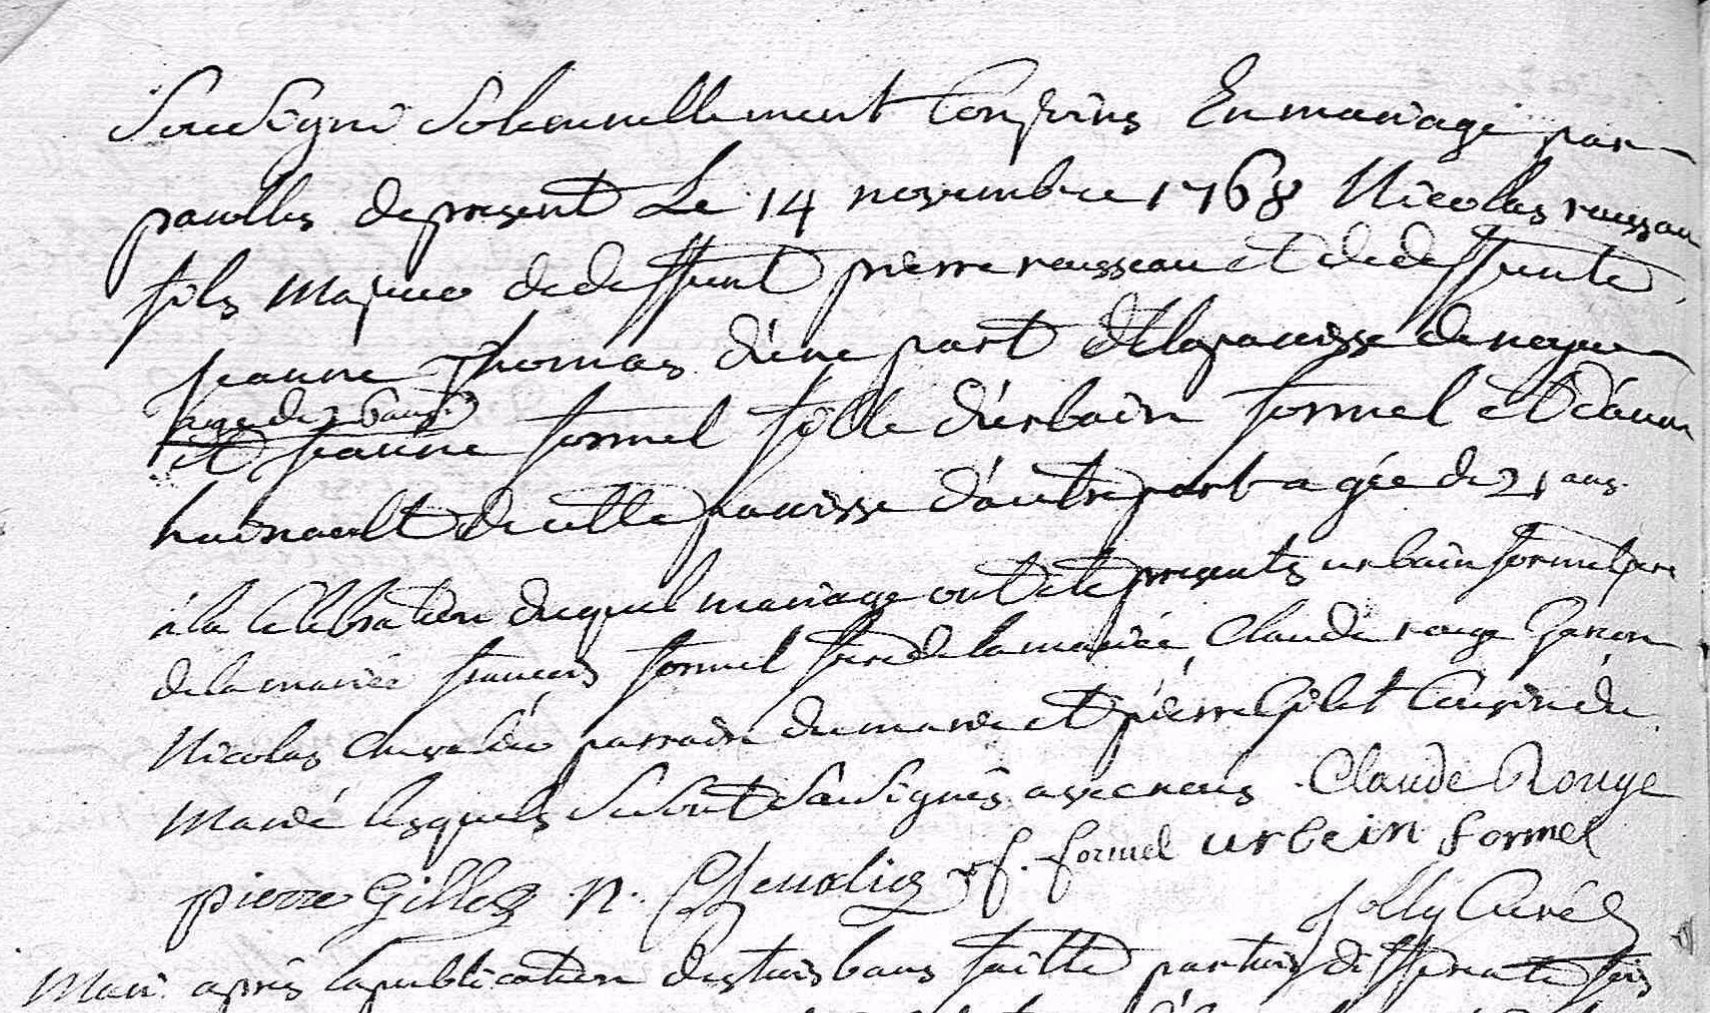 Sousigné Solennellement Conjoins En mariage par
parolles de present Le 14 novembre 1768 Nicolas rousseau
fils Majeur de deffunt pierre rousseau et de deffunte
jeanne Thomas d'une part de la paroisse de
age de ans
et jeanne formel fille d'urbain formel et d'anne
huenault de cette paroisse d'autre part agée de 21 ans
à la Celebration duquel mariage ont ete presents urbain formel pere
de la mariée francois formel frere de la mariée Claude rouge
Nicolas chevalier parrain du marié et pierre Gilet Cousin du
Marié lesquels se sont sousignés avec nous . Claude Rouge
pierre Gilles n. Chevalier f. formel urbein formel
Jolly Curé
Mari. après la publication des trois bans faitte par trois differente fois